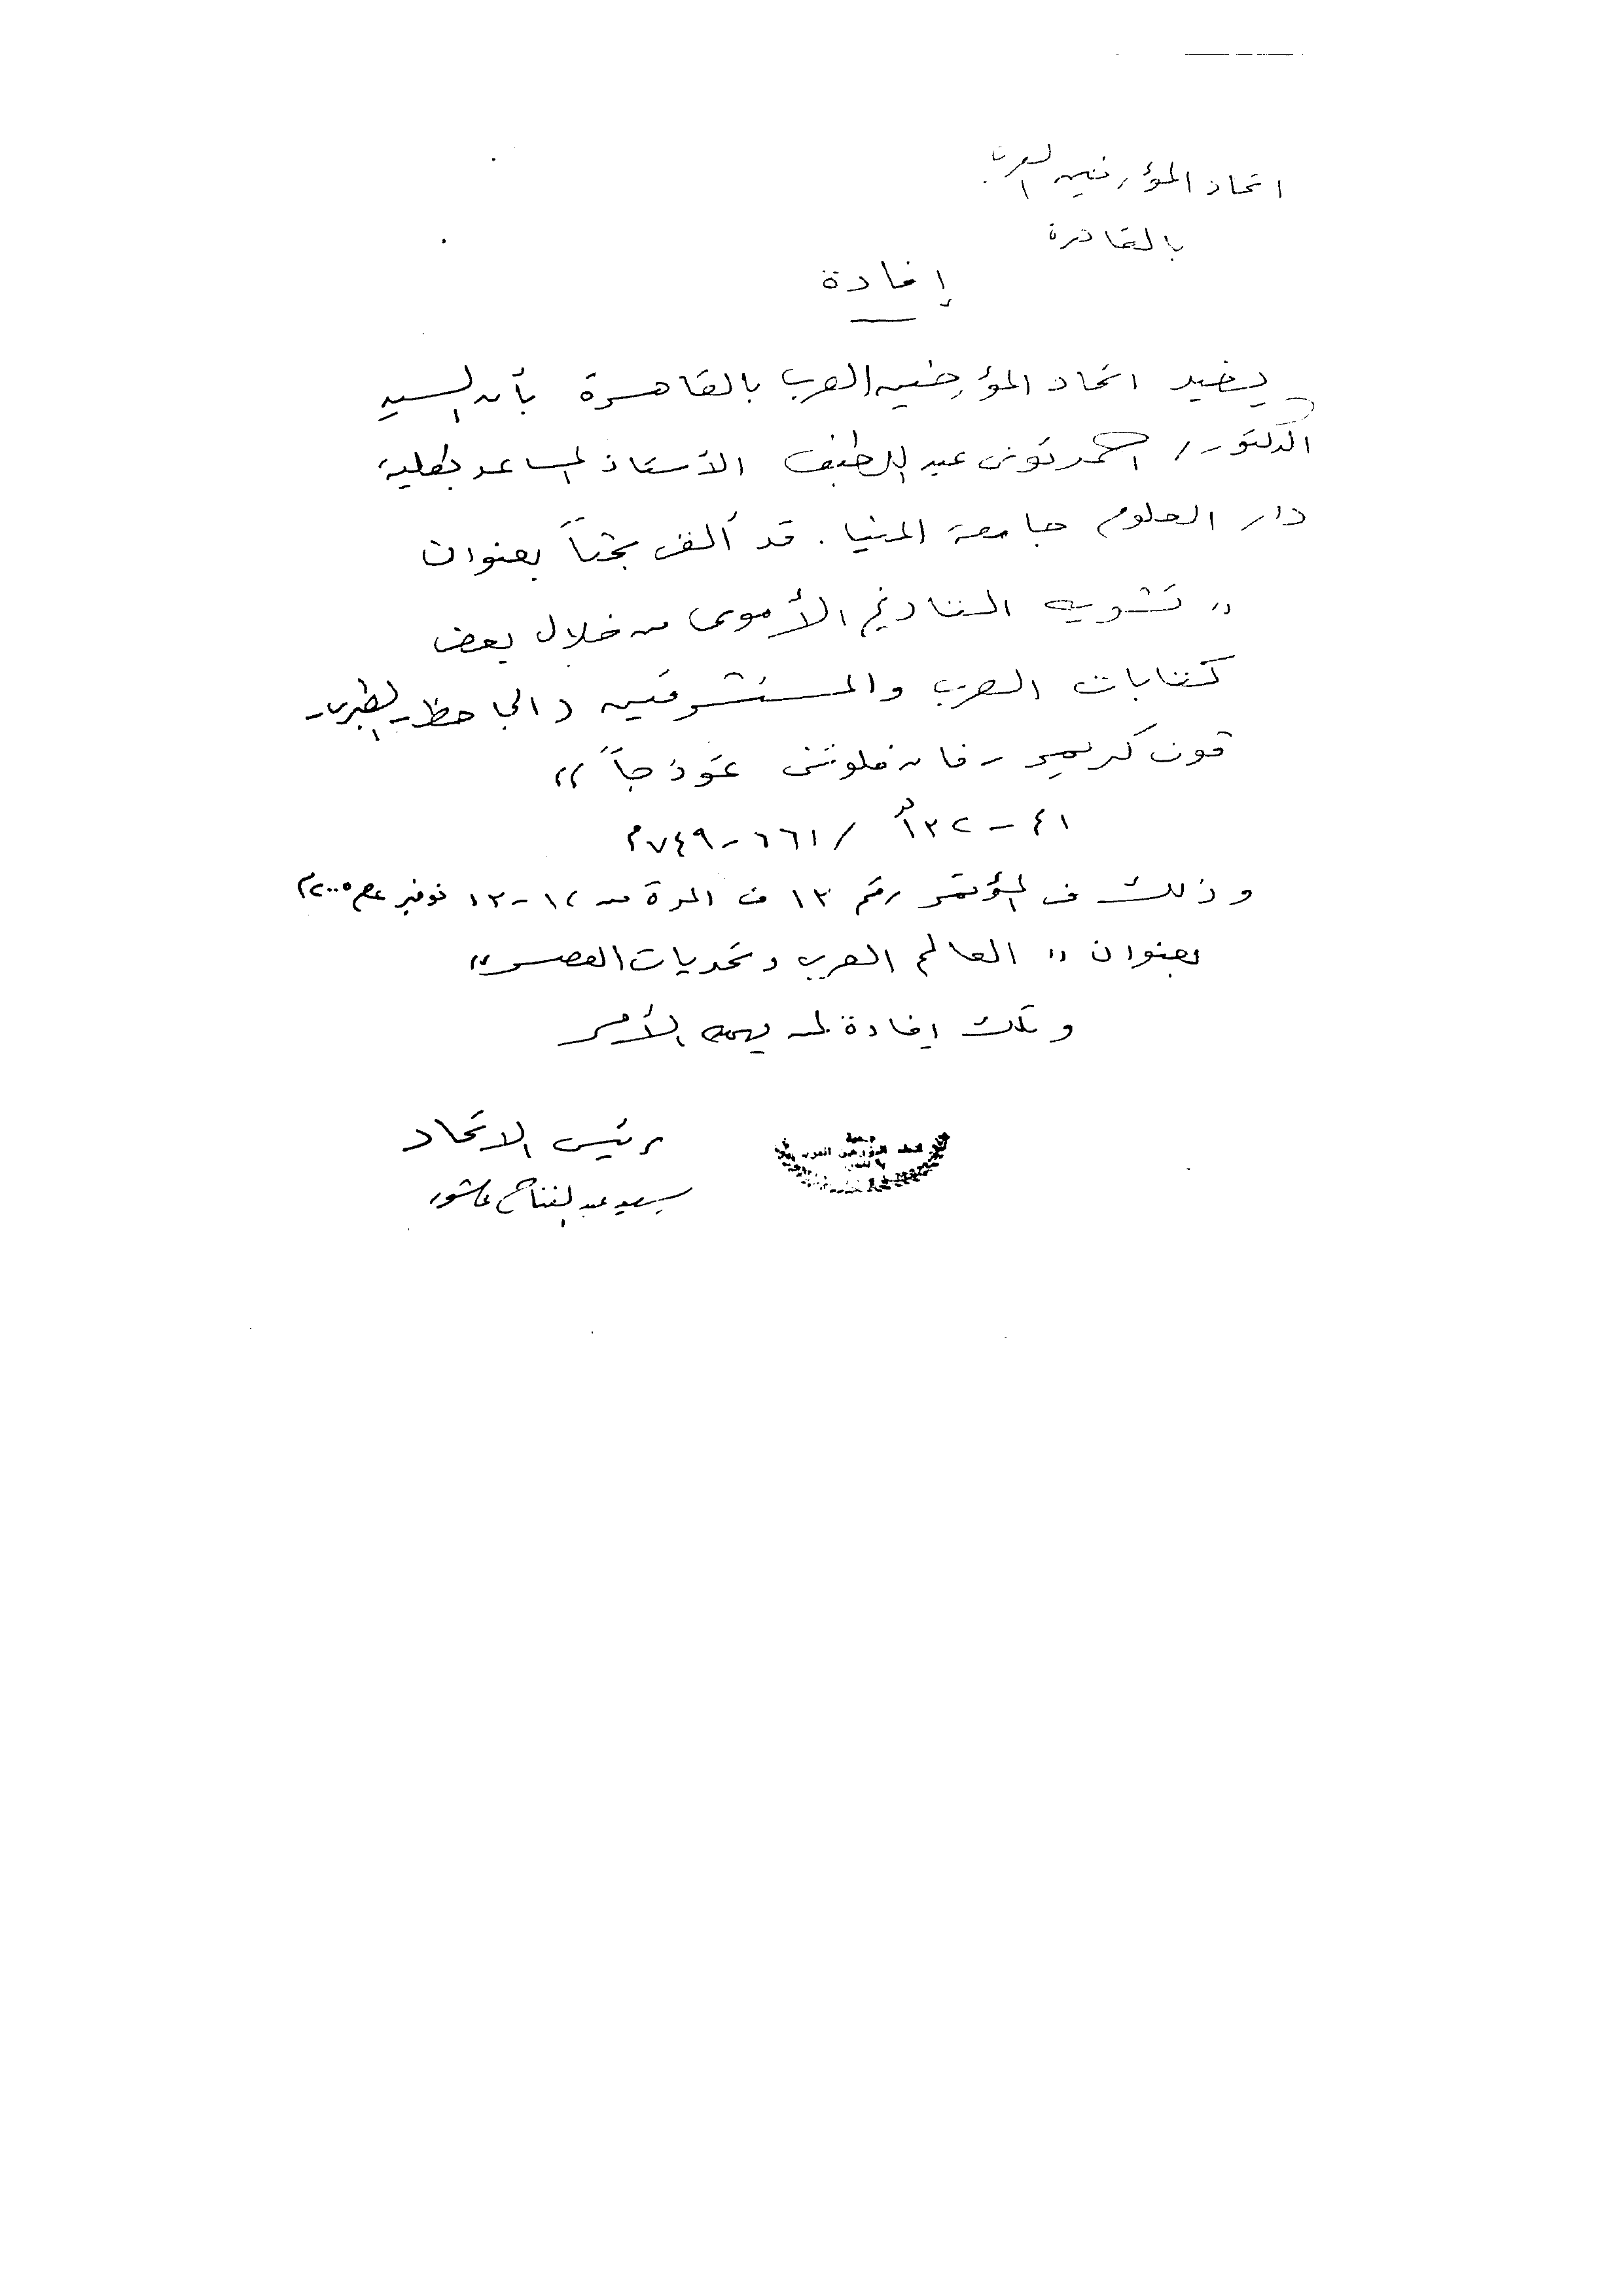 اتحاد المؤرخين العرب
بالقاهرة
إفادة
يفيد اتحاد المؤرخين العرب بالقاهرة بأن السيد
الدكتور / أحمد تونى عبد اللطيف الأستاذ المساعد بكلية
دار العلوم جامعة المنيا . قد ألف بحثاً بعنوان
" تشويه التاريخ الأموى من خلال بعض
كتابات العرب والمستشرقين ( الجاحظ - الطبرى -
فون كريمر - فان فلوتن نموذجاً "
٤١ - ١٣٢ هـ / ٦٦١ - ٧٤٩ م
وذلك فى المؤتمر رقم ١٣ فى المدة من ١٢ - ١٣ نوفمبر عام ٢٠٠٥ م
بعنوان " العالم العربى وتحديات العصر "
وتلك إفادة لمن يهمه الأمر
رئيس الاتحاد
سعيد عبد الفتاح عاشور
جمعية
اتحاد المؤرخين العرب